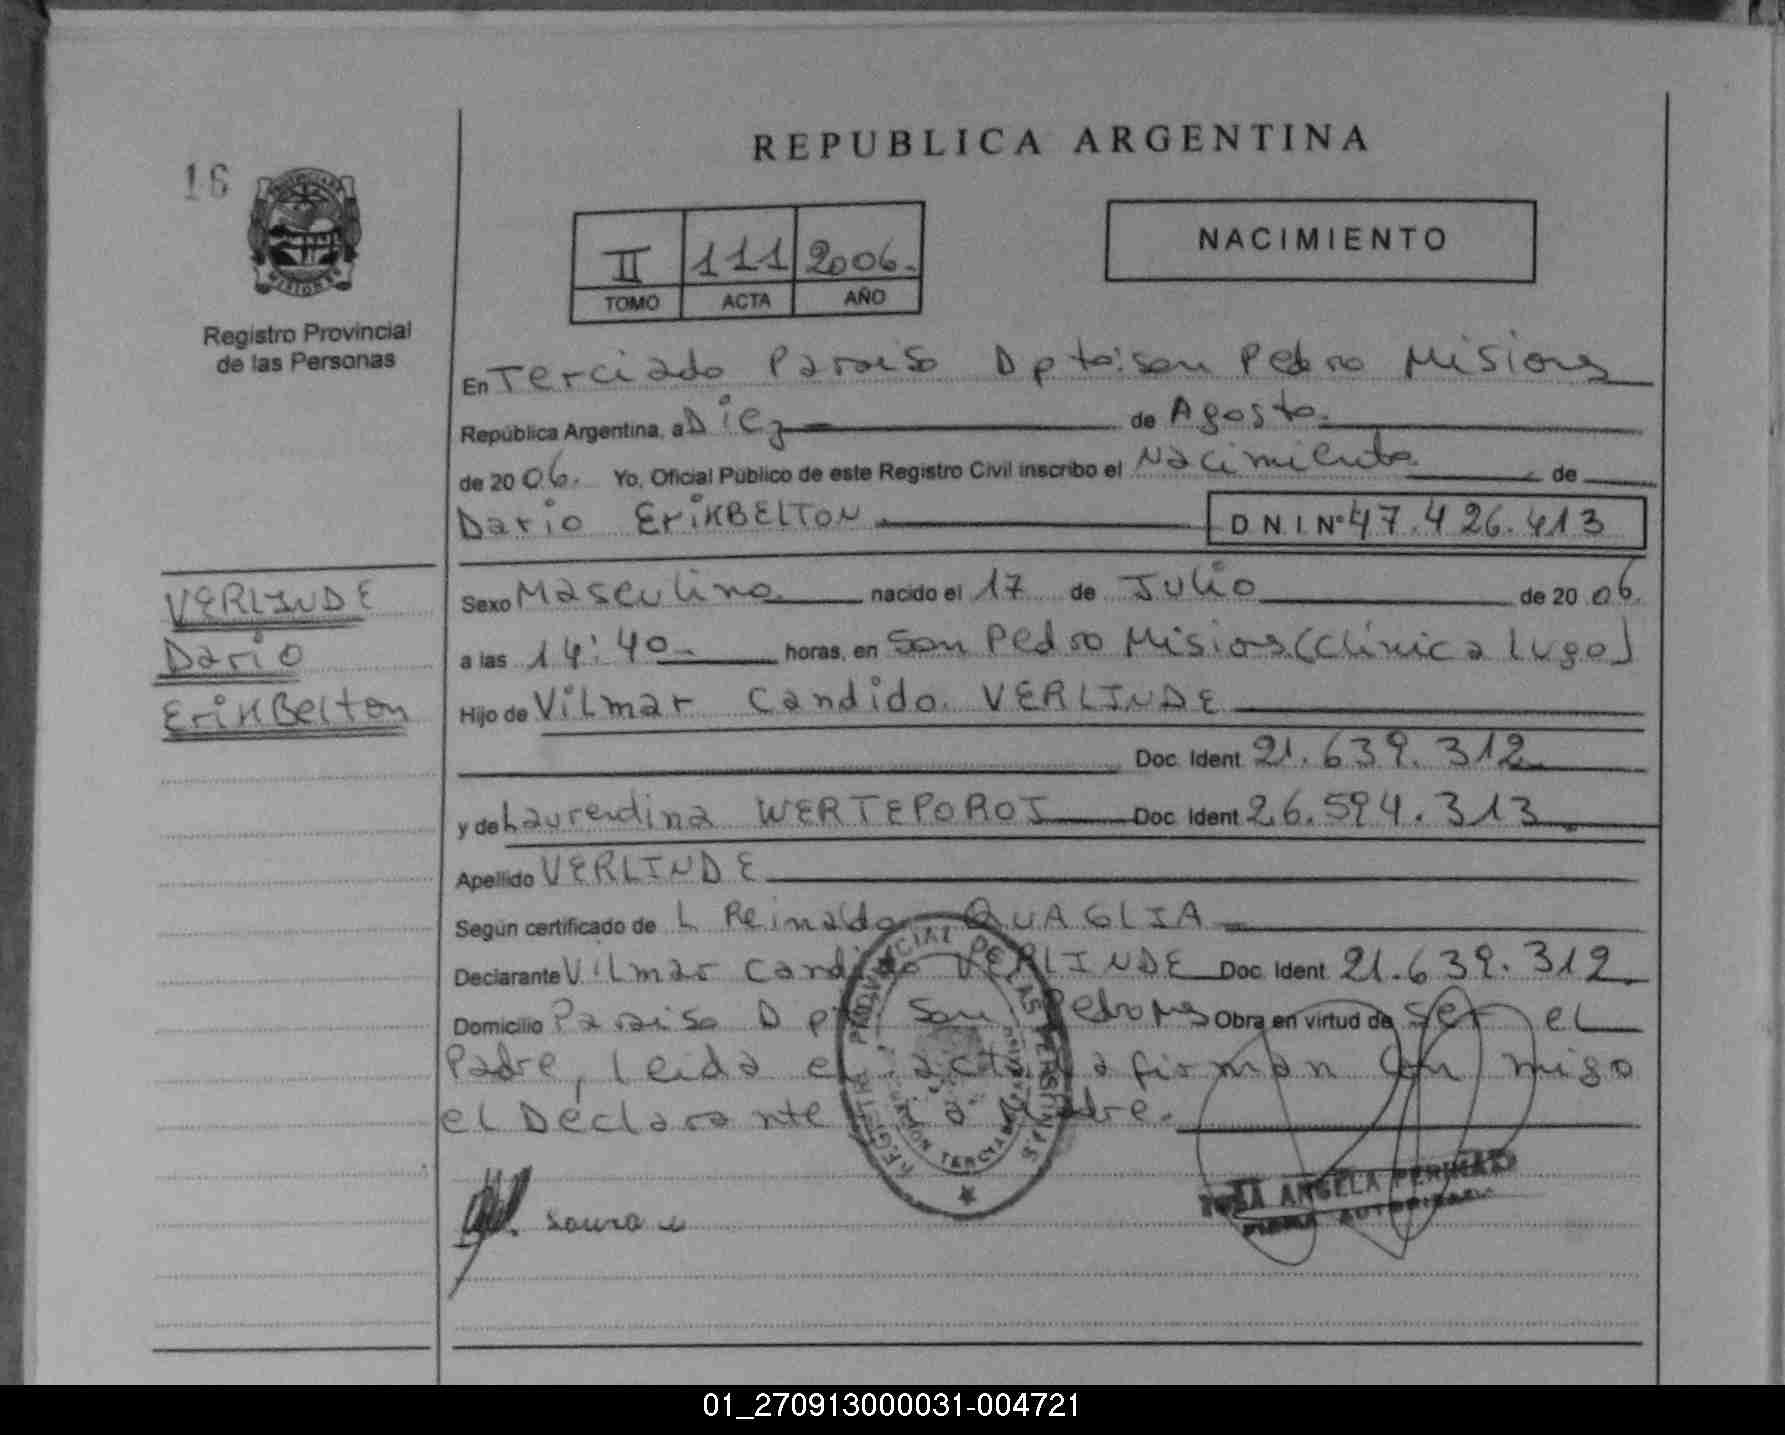 REPUBLICA ARGENTINA
16
NACIMIENTO
II 111 2006.
TOMO ACTA AÑO
MISIONES
Registro Provincial
de las Personas
En Terciado Paraiso Dpto: San Pedro Misiones
República Argentina, a Diez de Agosto.
de 20 06. Yo, Oficial Público de este Registro Civil inscribo el Nacimiento de
Dario ErikBELTON D.N.I. Nº 47.426.413
VERLINDE
Dario
ErikBelton
Sexo Masculino. nacido el 17 de Julio de 20 06.
a las 14:40. horas, en San Pedro Misiones (Clinica Lugo)
Hijo de Vilmar Candido VERLINDE
Doc. Ident. 21.639.312
y de Laurendina WERTEPOROJ Doc. Ident. 26.594.313
Apellido VERLINDE
Según certificado de L Reinaldo QUAGLIA
Declarante Vilmar Candido VERLINDE Doc. Ident. 21.639.312.
Domicilio Paraiso Dpto San Pedro Ms Obra en virtud de ser el
Padre, leida el acta la firman con migo
el Declarante y la Madre.
REGISTRO PROVINCIAL DE LAS PERSONAS
ANGELA
FIRMA AUTORIZADA
01_270913000031-004721